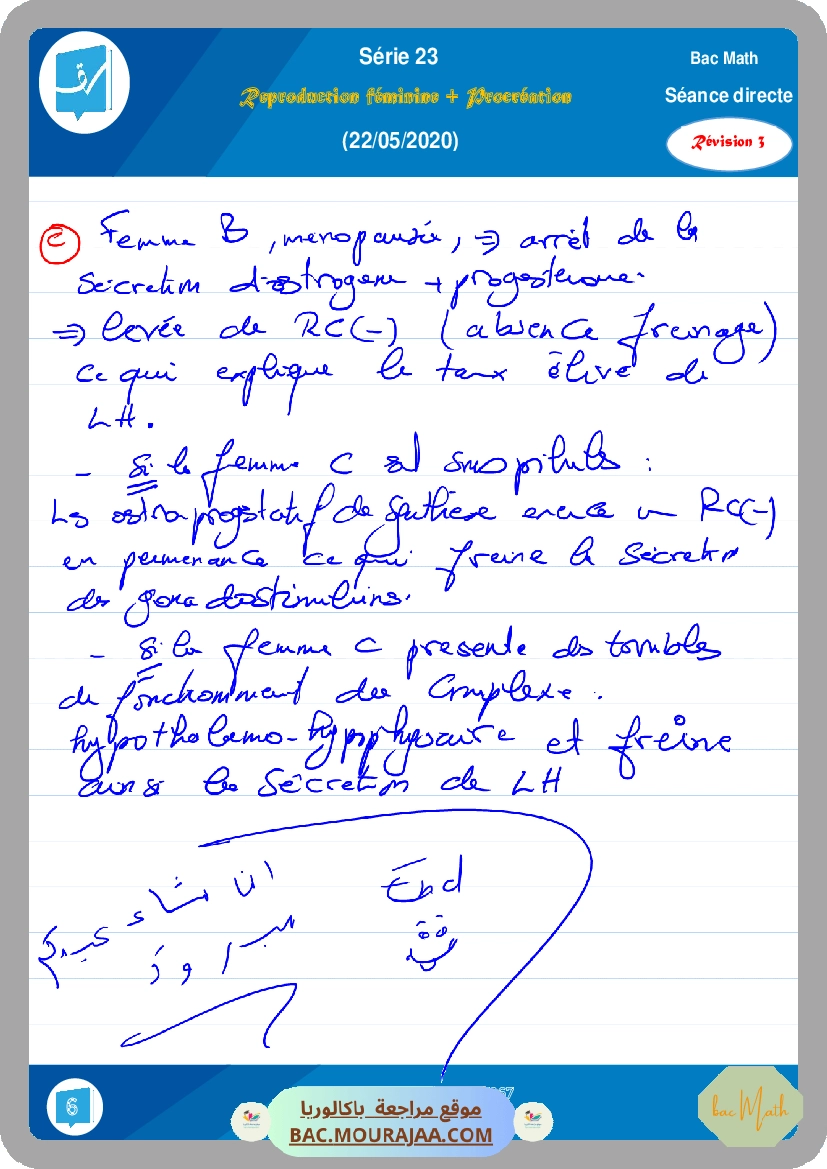 Série 23
Bac Math
Reproduction féminine + Procréation
Séance directe
(22/05/2020)
Révision 3
c Femme B, menopausée, => arrêt de la
Sécretion d'oestrogene + progesterone.
=> levée de RC(-) (absence freinage)
ce qui explique le taux élevé de
LH.
- Si la femme C est sous pilule :
Les oestroprogestatif de synthèse exerce un RC(-)
en permenance ce qui freine la Sécretion
des gonadostimulines.
- Si la femme C presente des troubles
de fonctionnement du Complexe.
hypothalamo-hypophysaire et freine
ainsi la Sécretion de LH
ان شاء
End
عيدكم
مبروك
6
موقع مراجعة باكالوريا
BAC.MOURAJAA.COM
bac Math